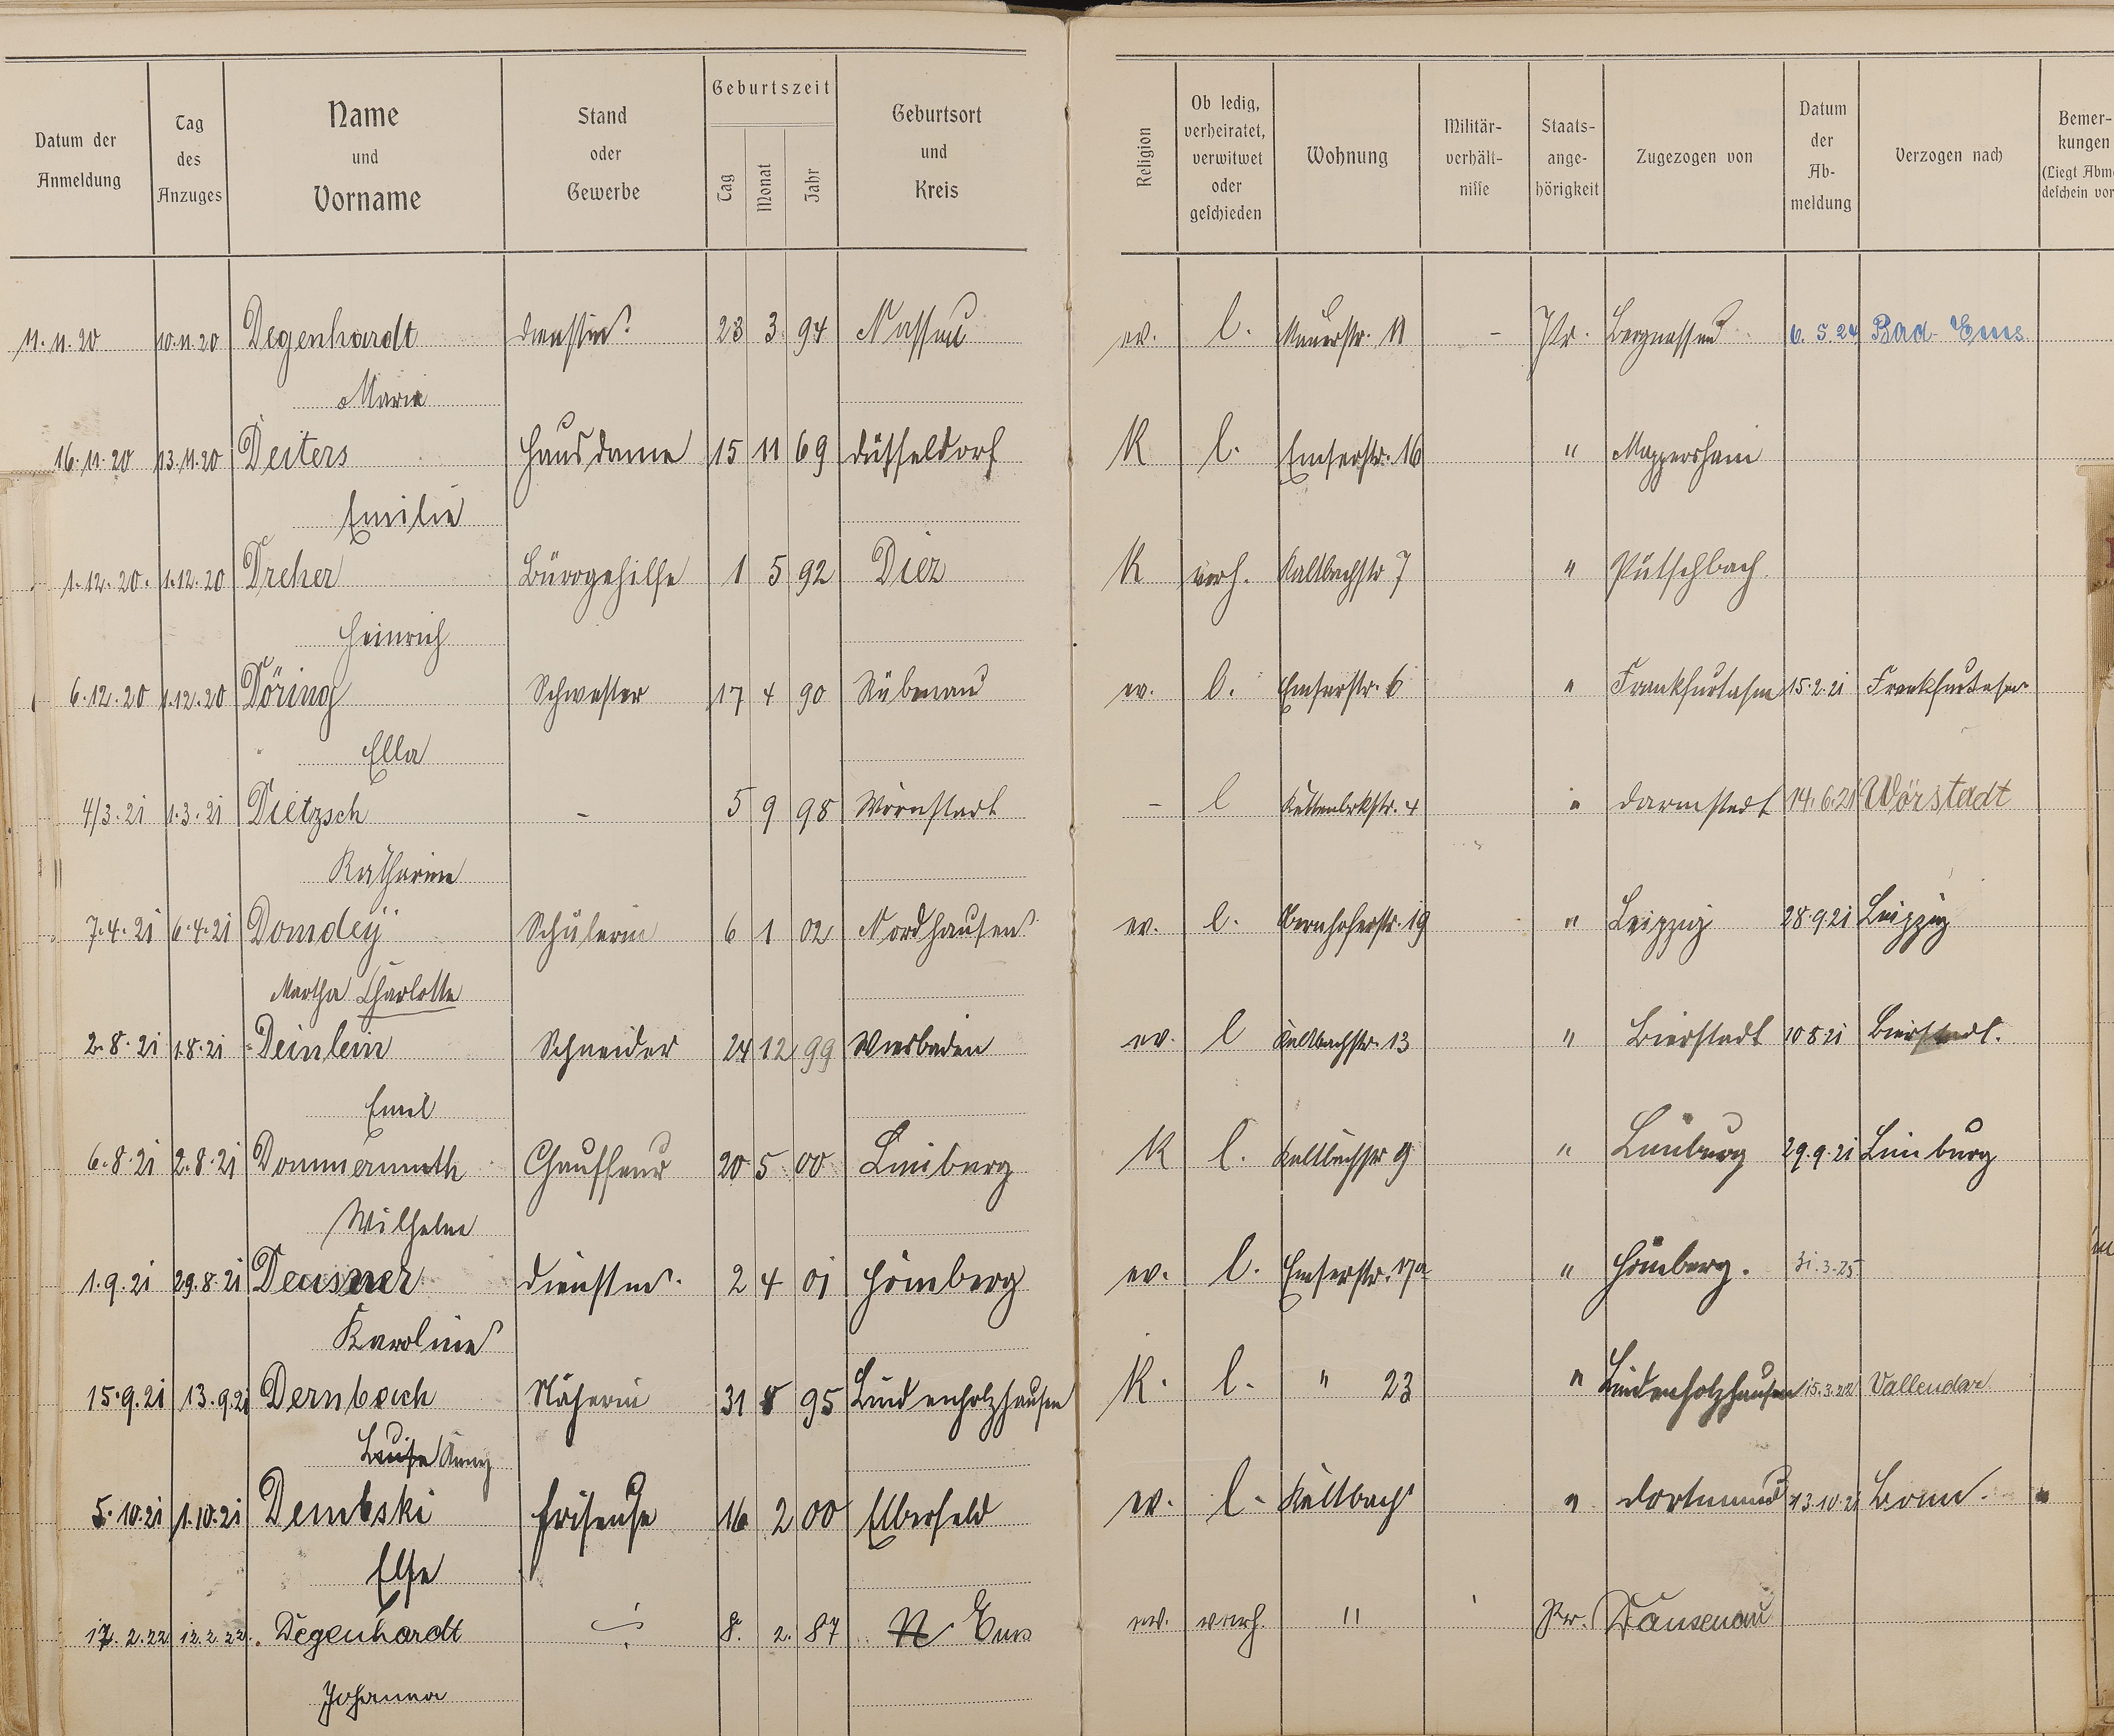 Datum der Anmeldung
Tag des Anzuges
Name und Vorname
Stand oder Gewerbe
Geburtszeit
Tag Monat Jahr
Geburtsort und Kreis
Religion
Ob ledig, verheiratet, verwitwet oder geschieden
Wohnung
Militär- verhält- nisse
Staats- ange- hörigkeit
Zugezogen von
Datum der Ab- meldung
Verzogen nach
Bemer- kungen
11.11.20 10.11.20 Degenhardt 23 3 94 Nassau ev. l. 11 - Pr. Bergnassau 6. 5 24 Bad-Ems
Marie
16.11.20 13.11.20 Deiters Hausdame 15 11 69 Düsseldorf K l. Emserstr. 16 " Mappershain
Emilie
1.12.20. 1.12.20 Dreher Bürogehilfe 1 5 92 Diez K verh. Kaltbachstr 7 " Pütschbach
Heinrich
6.12.20 1.12.20 Döring Schwester 17 4 90 Rübenau ev. l. Emserstr. 6 " Frankfurt a/m 15.2.21 Frankfurt a/m
Ella
4/3.21 1.3.21 Dietzsch - 5 9 98 - l 4 " Darmstadt 14.6.21 Wörstadt
Katharine
7.4.21 6.4.21 Domdey Schülerin 6 1 02 Nordhausen ev. l. 19 " Leipzig 28.9.21 Leipzig
Martha Charlotte
2.8.21 1.8.21 Deinlein Schneider 24 12 99 Wiesbaden ev. l Kaltbachstr. 13 " Bierstadt 10 8 21 Bierstadt.
Emil
6.8.21 2.8.21 Dommermuth Chauffeur 20 5 00 Limburg K l. Kaltbachstr 9 " Limburg 29.9.21 Limburg
Wilhelm
1.9.21 29.8.21 Deusner Dienstm. 2 4 01 Hömberg ev. l. Emserstr. 17a " Hömberg. 31.3.25
Karoline
15.9.21 13.9.21 Dernbach Näherin 31 8 95 Lindenholzhausen K. l. " 23 " Lindenholzhausen 15.3.22 Vallendar
Luise Anny
5.10.21 1.10.21 Dembski Friseuse 16 2 00 Elberfeld ev. l. Kaltbach " Dortmund 13.10.21 Bonn.
Else
17.2.22 12.2.22. Degenhardt 8. 2. 87 N Ems ev. verh. " Pr. Dausenau
Johanna